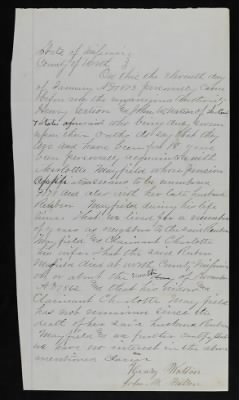 State of Missouri
County of Worth
On this the eleventh day
of January AD 1873 personally came
before me the undersigned authority
Henry Watson & John W. Watson of
State aforesaid who being duly sworn
upon their oaths do say that they
are and have been for 18 years
been personally acquainted with
Charlotte Mayfield whose pension
and also with her late husband
Reuben Mayfield during his life
time That we lived for a number
of years as neighbors to the said Reuben
Mayfield & Claimant Charlotte
his wife That the said Reuben
Mayfield died at Worth County Missouri
on or about the day of
AD 1862 & that his widow &
Claimant Charlotte Mayfield
has not remarried since the
death of her said husband Reuben
Mayfield & we further certify that
we have no interest in the above
mentioned claim
Henry Watson
John W. Watson